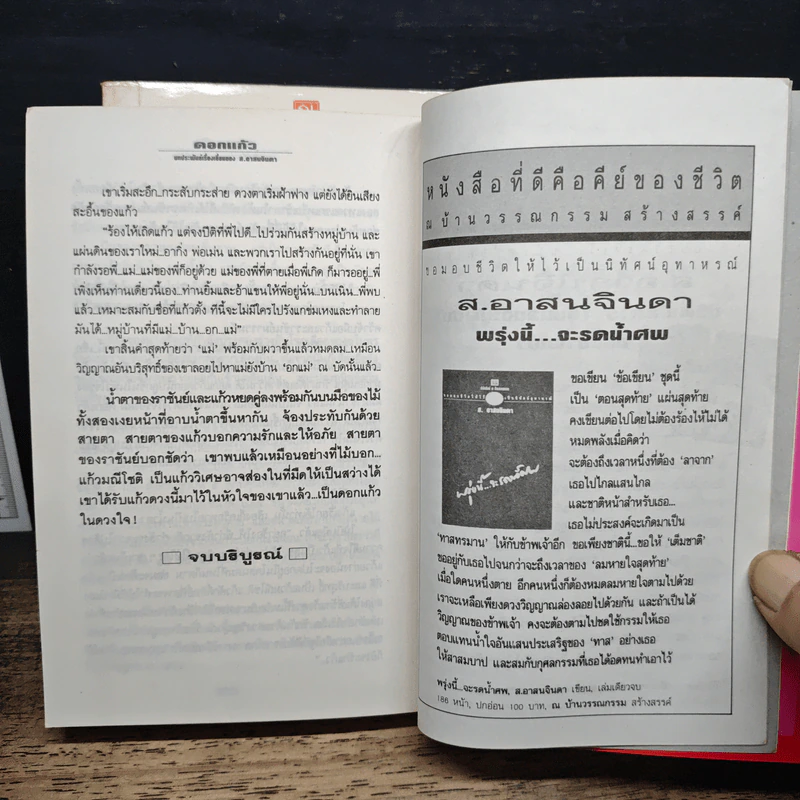 ดอกแก้ว
บทประพันธ์เรื่องเยี่ยมของ ส.อาสนจินดา
เขาเริ่มสะอึก...กระสับกระส่าย ดวงตาเริ่มฝ้าฟาง แต่ยังได้ยินเสียง
สะอื้นของแก้ว
"ร้องไห้เถิดแก้ว แต่จงปีติที่พี่ไปดี...ไปร่วมกันสร้างหมู่บ้าน และ
แผ่นดินของเราใหม่...อากิ่ง พ่อเม่น และพวกเราไปสร้างกันอยู่ที่นั่น เขา
กำลังรอพี่...แม่...แม่ของพี่ก็อยู่ด้วย แม่ของพี่ที่ตายเมื่อพี่เกิด ก็มารออยู่...พี่
เพิ่งเห็นท่านเดี๋ยวนี้เอง...ท่านยิ้มและอ้าแขนให้พี่อยู่นั่น...บนเนิน...พี่พบ
แล้ว...เหมาะสมกับชื่อที่แก้วตั้ง ที่นี่จะไม่มีใครไปรังแกข่มเหงและทำลาย
มันได้...หมู่บ้านที่มีแม่...บ้าน...อก...แม่"
เขาสิ้นคำสุดท้ายว่า 'แม่' พร้อมกับผวาขึ้นแล้วหมดลม...เหมือน
วิญญาณอันบริสุทธิ์ของเขาลอยไปหาแม่ยังบ้าน 'อกแม่' ณ บัดนั้นแล้ว...
น้ำตาของราชันย์และแก้วหยดคู่ลงพร้อมกันบนมือของไม้
ทั้งสองเงยหน้าที่อาบน้ำตาขึ้นหากัน จ้องประทับกันด้วย
สายตา สายตาของแก้วบอกความรักและให้อภัย สายตา
ของราชันย์บอกชัดว่า เขาพบแล้วเหมือนอย่างที่ไม้บอก...
แก้วมณีโชติ เป็นแก้ววิเศษอาจส่องในที่มืดให้เป็นสว่างได้
เขาได้รับแก้วดวงนี้มาไว้ในหัวใจของเขาแล้ว...เป็นดอกแก้ว
ในดวงใจ!
จบบริบูรณ์
หนังสือที่ดีคือคีย์ของชีวิต
ณ บ้านวรรณกรรม สร้างสรรค์
ขอมอบชีวิตให้ไว้เป็นนิทัศน์อุทาหรณ์
ส.อาสนจินดา
พรุ่งนี้...จะรดน้ำศพ
ส. อาสนจินดา
พรุ่งนี้...จะรดน้ำศพ
ขอเขียน 'ข้อเขียน' ชุดนี้
เป็น 'ตอนสุดท้าย' แผ่นสุดท้าย
คงเขียนต่อไปโดยไม่ต้องร้องไห้ไม่ได้
หมดพลังเมื่อคิดว่า
จะต้องถึงเวลาหนึ่งที่ต้อง 'ลาจาก'
เธอไปไกลแสนไกล
และชาติหน้าสำหรับเธอ...
เธอไม่ประสงค์จะเกิดมาเป็น
'ทาสทรมาน' ให้กับข้าพเจ้าอีก ขอเพียงชาตินี้...ขอให้ 'เต็มชาติ'
ขออยู่กับเธอไปจนกว่าจะถึงเวลาของ 'ลมหายใจสุดท้าย'
เมื่อใดคนหนึ่งตาย อีกคนหนึ่งก็ต้องหมดลมหายใจตามไปด้วย
เราจะเหลือเพียงดวงวิญญาณล่องลอยไปด้วยกัน และถ้าเป็นได้
วิญญาณของข้าพเจ้า คงจะต้องตามไปชดใช้กรรมให้เธอ
ตอบแทนน้ำใจอันแสนประเสริฐของ 'ทาส' อย่างเธอ
ให้สาสมบาป และสมกับกุศลกรรมที่เธอได้อดทนทำเอาไว้
พรุ่งนี้...จะรดน้ำศพ, ส.อาสนจินดา เขียน, เล่มเดียวจบ
186 หน้า, ปกอ่อน 100 บาท, ณ บ้านวรรณกรรม สร้างสรรค์